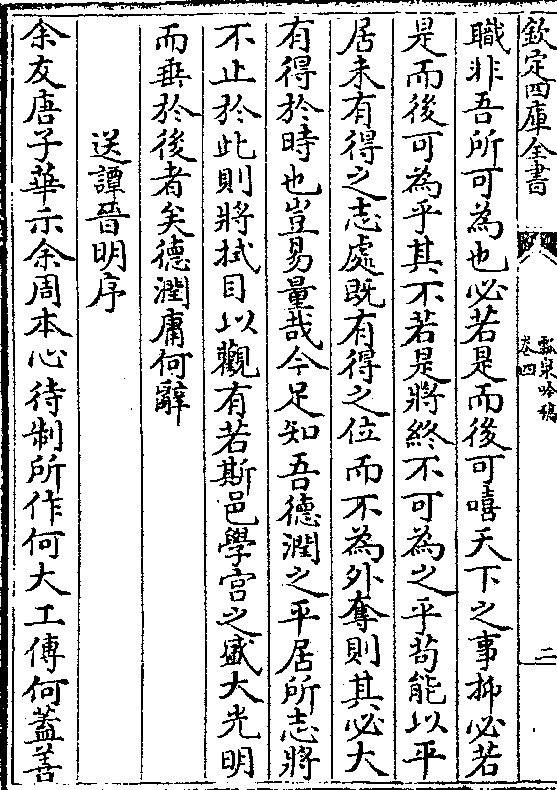 欽定四庫全書
瓢泉吟稿
卷四
二
職非吾所可為也必若是而後可嘻天下之事抑必若
是而後可為乎其不若是將終不可為之乎苟能以平
居未有得之志處既有得之位而不為外奪則其必大
有得於時也豈易量哉今足知吾德潤之平居所志將
不止於此則將拭目以觀有若斯邑學宮之盛大光明
而垂於後者矣德潤庸何辭
送譚晉明序
余友唐子華示余周本心待制所作何大工傳何蓋善